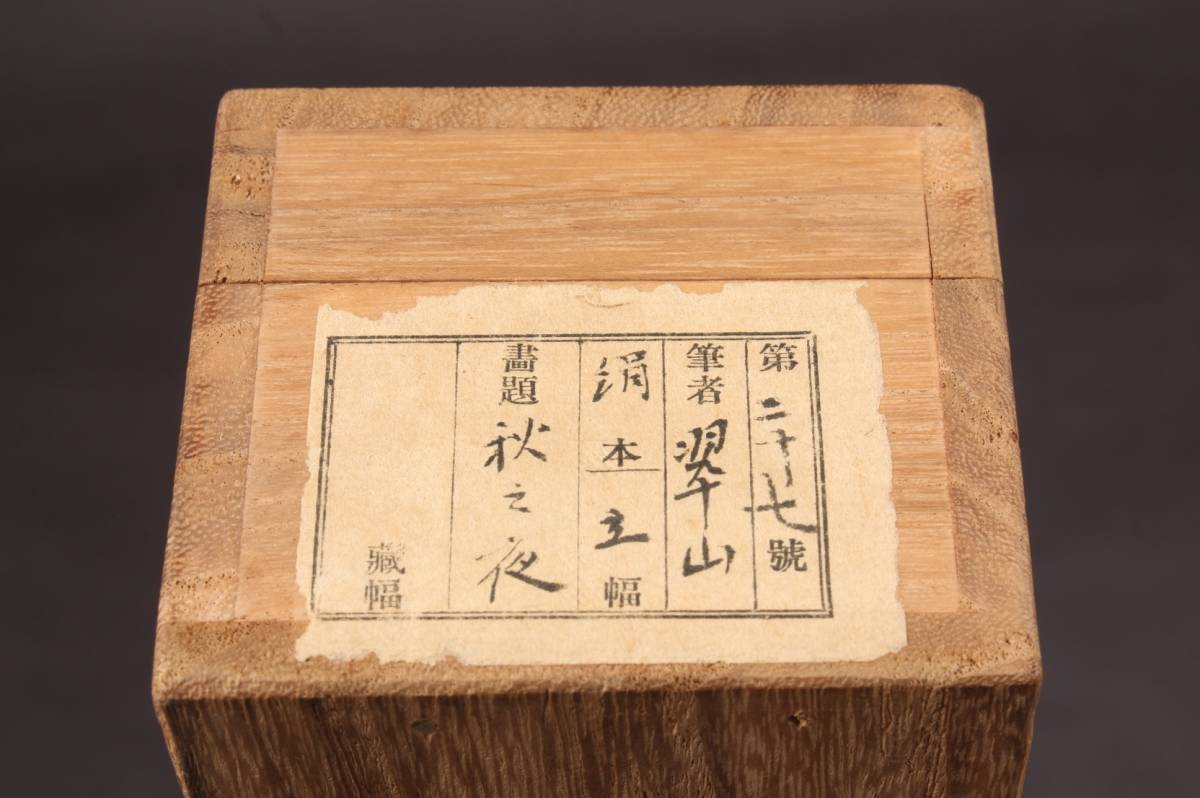 第二十七號
筆者翠山
絹本立幅
畵題秋之夜
藏幅